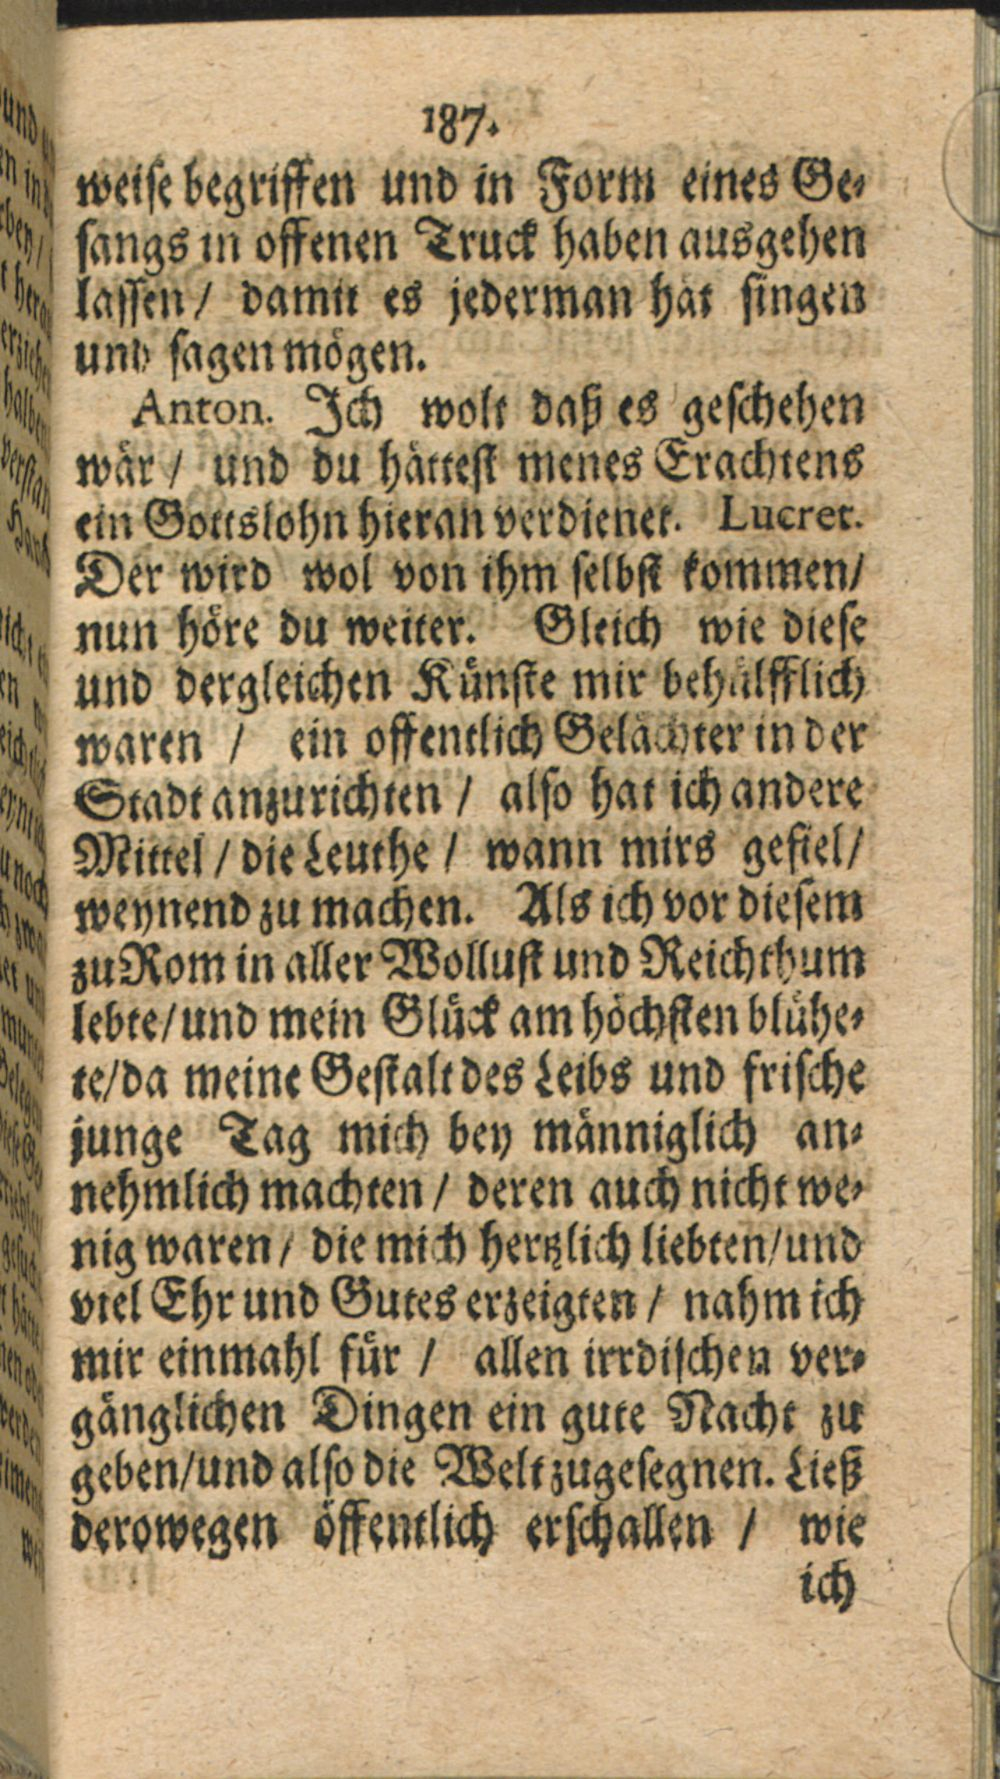 187.
weise begriffen und in Form eines Ge-
sangs in offenen Truck haben ausgehen
lassen / damit es jederman hat singen
und sagen mögen.
Anton. Ich wolt daß es geschehen
wär / und du hättest menes Erachtens
ein Gottslohn hieran verdienet. Lucret.
Der wird wol von ihm selbst kommen/
nun höre du weiter. Gleich wie diese
und dergleichen Künste mir behülfflich
waren / ein offentlich Gelächter in der
Stadt anzurichten / also hat ich andere
Mittel / die Leuthe / wann mirs gefiel/
weynend zu machen. Als ich vor diesem
zu Rom in aller Wollust und Reichthum
lebte/und mein Glück am höchsten blühe-
te/da meine Gestalt des Leibs und frische
junge Tag mich bey männiglich an-
nehmlich machten / deren auch nicht we-
nig waren / die mich hertzlich liebten/und
viel Ehr und Gutes erzeigten / nahm ich
mir einmahl für / allen irrdischen ver-
gänglichen Dingen ein gute Nacht zu
geben/und also die Welt zugesegnen. Ließ
derowegen öffentlich erschallen / wie
ich